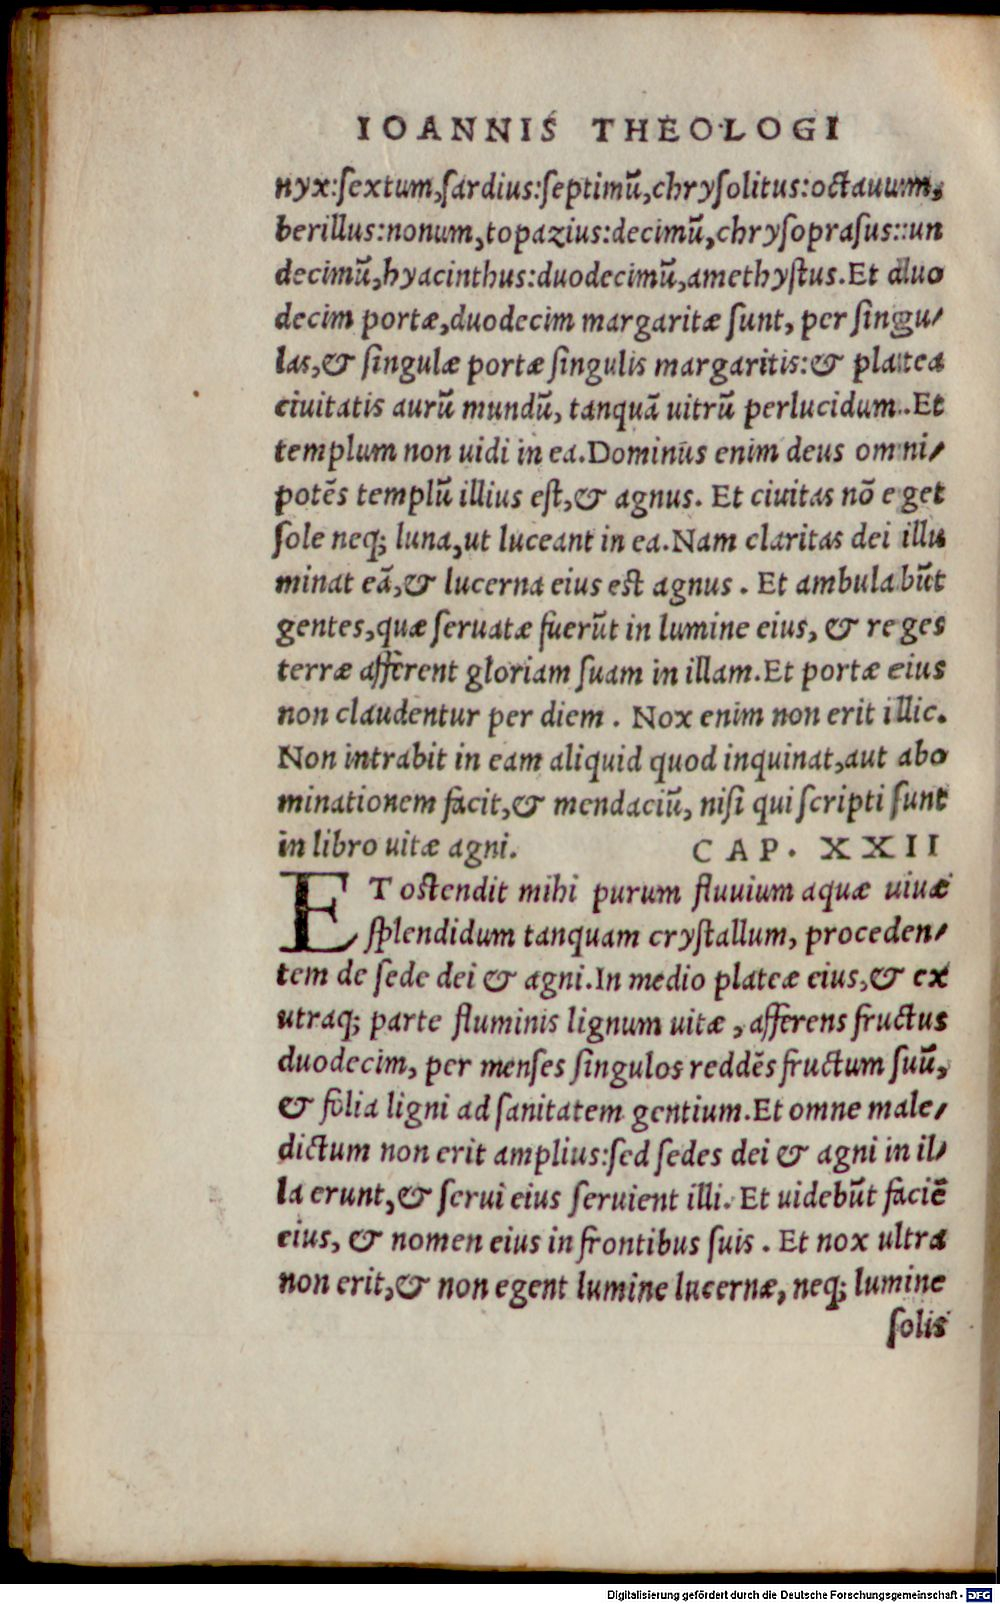 IOANNIS THEOLOGI
nyx:ſextum,ſardius:ſeptimū,chryſolitus:octauum,
berillus:nonum,topazius:decimū,chryſopraſus:un
decimū,hyacinthus:duodecimū,amethyſtus.Et duo
decim portæ,duodecim margaritæ ſunt, per ſingu-
las,& ſingulæ portæ ſingulis margaritis:& platea
ciuitatis aurū mundū, tanquā uitrū perlucidum.Et
templum non uidi in ea.Dominus enim deus omni-
potēs templū illius eſt,& agnus. Et ciuitas nō eget
ſole neq; luna,ut luceant in ea.Nam claritas dei illu
minat eā,& lucerna eius est agnus . Et ambulabūt
gentes,quæ ſeruatæ fuerūt in lumine eius, & reges
terræ afferent gloriam ſuam in illam.Et portæ eius
non claudentur per diem . Nox enim non erit illic.
Non intrabit in eam aliquid quod inquinat,aut abo
minationem facit,& mendaciū, niſi qui ſcripti ſunt
in libro uitæ agni.
CAP. XXII
ET oſtendit mihi purum fluuium aquæ uiuæ
ſplendidum tanquam cryſtallum, proceden-
tem de ſede dei & agni.In medio plateæ eius,& ex
utraq; parte fluminis lignum uitæ , afferens fructus
duodecim, per menſes ſingulos reddēs fructum ſuū,
& folia ligni ad ſanitatem gentium.Et omne male-
dictum non erit amplius:ſed ſedes dei & agni in il-
la erunt,& ſerui eius ſeruient illi. Et uidebūt faciē
eius, & nomen eius in frontibus ſuis . Et nox ultra
non erit,& non egent lumine lucernæ, neq; lumine
ſolis
Digitalisierung gefördert durch die Deutsche Forschungsgemeinschaft - DFG